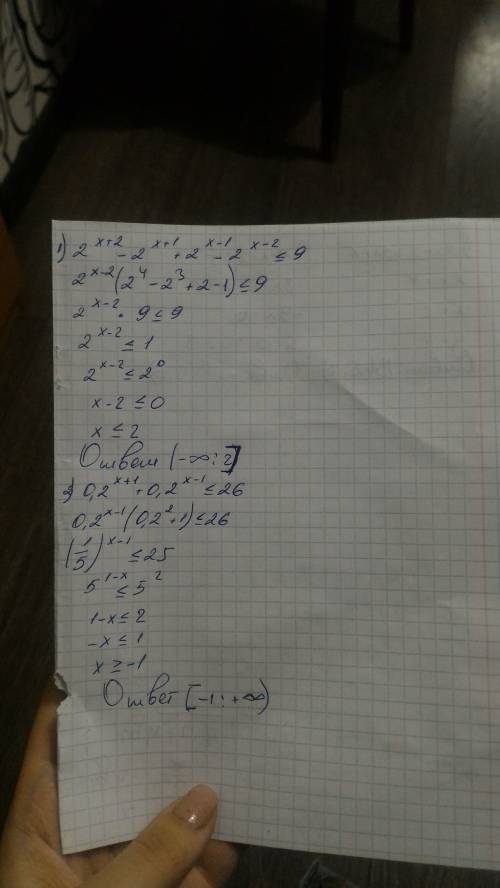 1) 2^{x+2} - 2^{x+1} + 2^{x-1} - 2^{x-2} ≤ 9
2^{x-2}(2^4 - 2^3 + 2 - 1) ≤ 9
2^{x-2} · 9 ≤ 9
2^{x-2} ≤ 1
2^{x-2} ≤ 2^0
x-2 ≤ 0
x ≤ 2
Ответ (-∞; 2]
2) 0,2^{x+1} + 0,2^{x-1} ≤ 26
0,2^{x-1}(0,2^2 + 1) ≤ 26
(1/5)^{x-1} ≤ 25
5^{1-x} ≤ 5^2
1-x ≤ 2
-x ≤ 1
x ≥ -1
Ответ [-1; +∞)